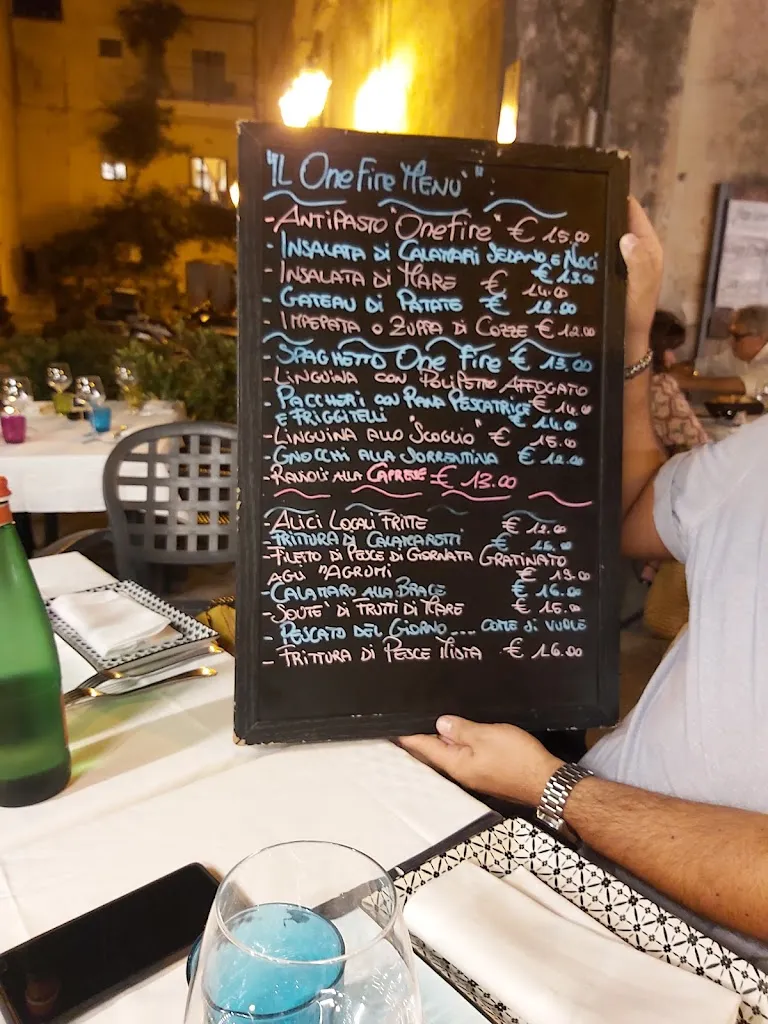 "IL ONEFIRE MENU'":
- ANTIPASTO "ONEFIRE" € 15.00
- INSALATA DI CALAMARI SEDANO E NOCI
€ 13.00
- INSALATA DI MARE € 14.00
- GATEAU DI PATATE € 12.00
- IMPEPATA O ZUPPA DI COZZE € 12.00
- SPAGHETTO ONE FIRE € 13.00
- LINGUINA CON POLIPETTO AFFOGATO
€ 14.00
- PACCHERI CON RANA PESCATRICE
E FRIGGITELLI € 14.00
- LINGUINA ALLO "SCOGLIO" € 15.00
- GNOCCHI ALLA SORRENTINA € 12.00
- RAVIOLI ALLA CAPRESE € 13.00
- ALICI LOCALI FRITTE € 12.00
- FRITTURA DI CALAMAROTTI € 16.00
- FILETTO DI PESCE DI GIORNATA GRATINATO
AGLI "AGRUMI € 13.00
- CALAMARO ALLA BRACE € 16.00
- SOUTE' DI FRUTTI DI MARE € 15.00
- PESCATO DEL GIORNO... COME SI VUOLE
- FRITTURA DI PESCE MISTA € 16.00